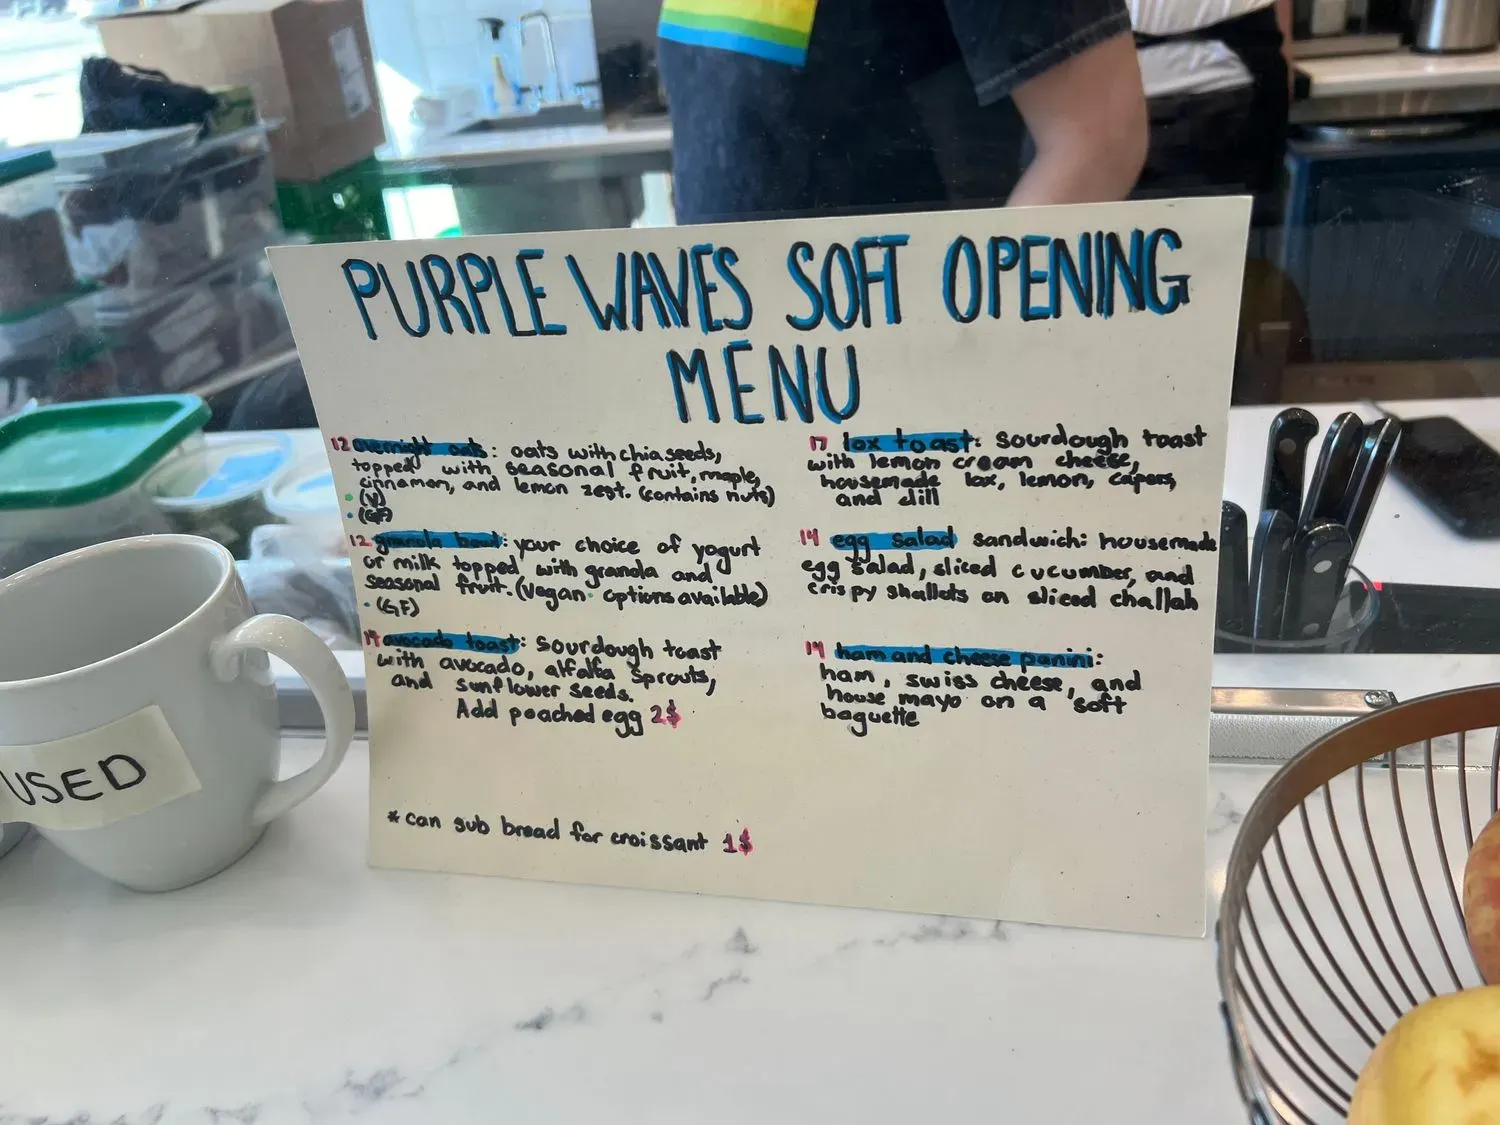 PURPLE WAVES SOFT OPENING
MENU
12 overnight oats: oats with chia seeds,
topped with seasonal fruit, maple,
cinnamon, and lemon zest. (contains nuts)
• (V)
• (GF)
12 granola bowl: your choice of yogurt
or milk topped with granola and
seasonal fruit. (vegan options available)
• (GF)
14 avocado toast: sourdough toast
with avocado, alfalfa sprouts,
and sunflower seeds.
Add poached egg 2$
* can sub bread for croissant 1$
17 lox toast: sourdough toast
with lemon cream cheese,
housemade lox, lemon, capers,
and dill
14 egg salad sandwich: housemade
egg salad, sliced cucumber, and
crispy shallots on sliced challah
14 ham and cheese panini:
ham, swiss cheese, and
house mayo on a soft
baguette
USED